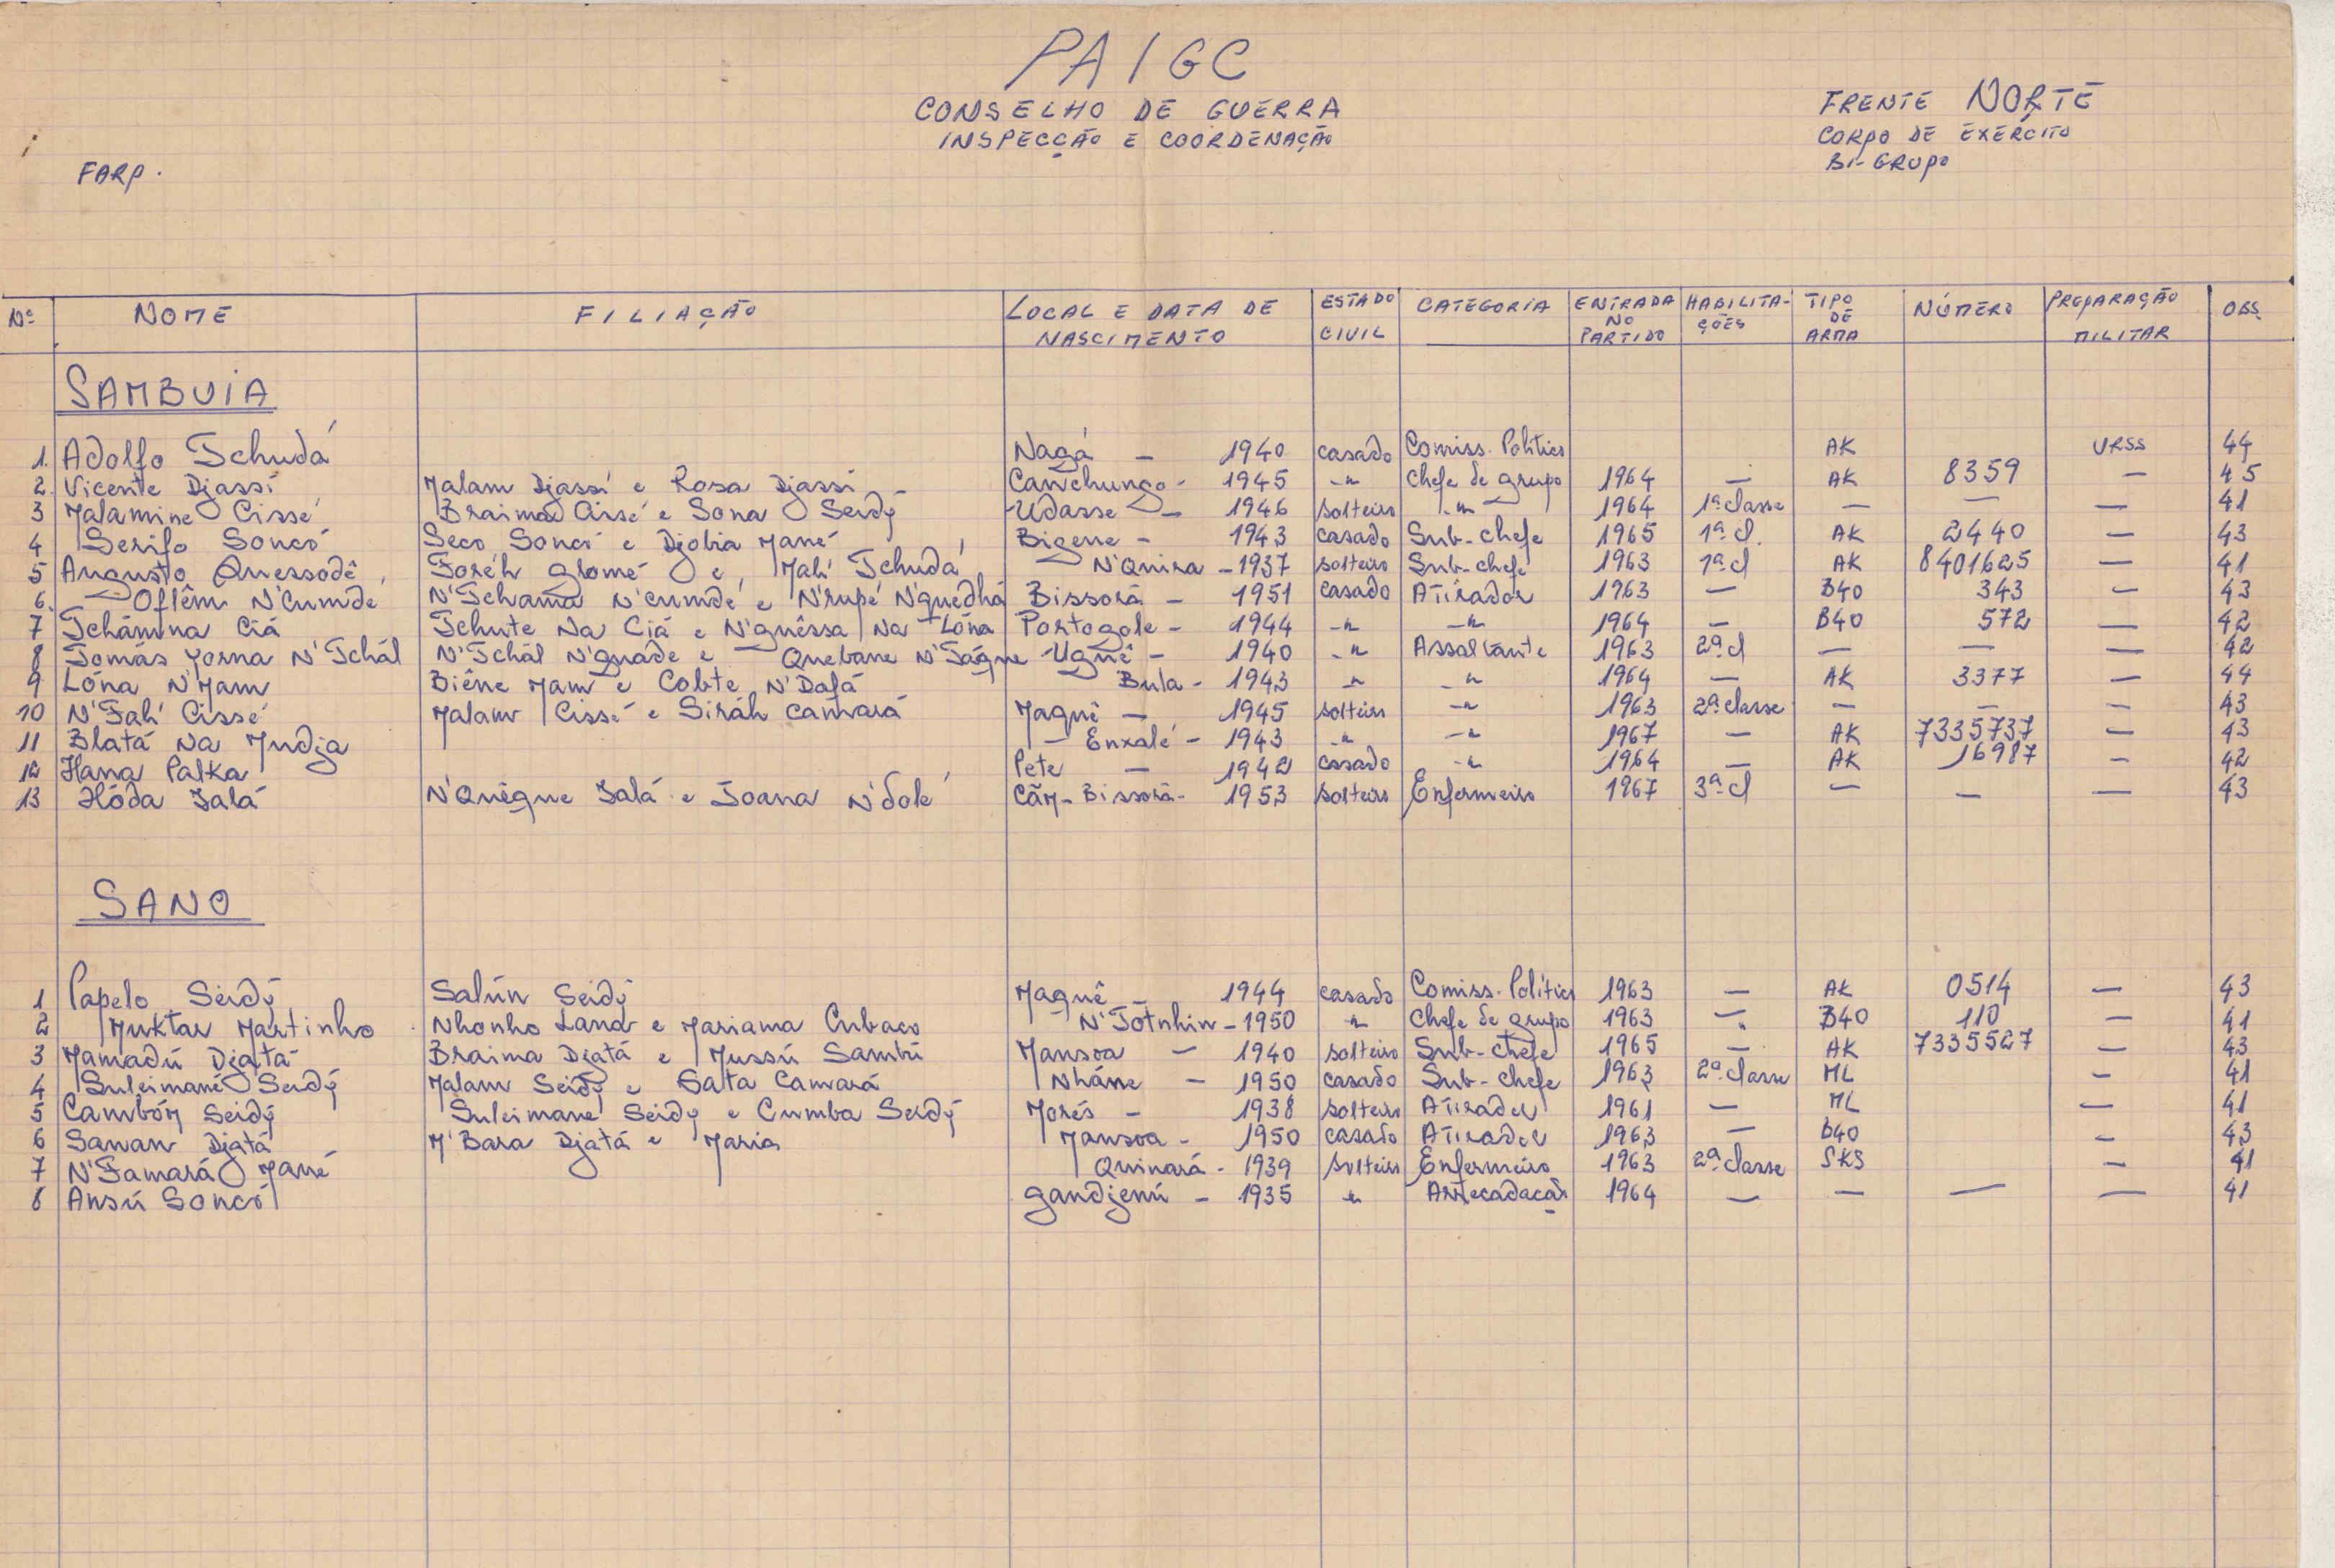 PAIGC
CONSELHO DE GUERRA
INSPECÇÃO E COORDENAÇÃO
FRENTE NORTE
CORPO DE EXÉRCITO
BI-GRUPO
FARP.
Nº NOME FILIAÇÃO LOCAL E DATA DE NASCIMENTO ESTADO CIVIL CATEGORIA ENTRADA NO PARTIDO HABILITA-ÇÕES TIPO DE ARMA NÚMERO PREPARAÇÃO MILITAR OBS.
SAMBUIA
1. Adolfo Tchudá Nagá - 1940 casado Comiss. Político AK URSS 44
2. Vicente Djassi Malam Djassi e Rosa Djassi Canchungo - 1945 -"- Chefe de grupo 1964 — AK 8359 — 45
3 Malamine Cissé Braima Cissé e Sona Seidy Udasse - 1946 solteiro -"- 1964 1ª classe — — — 41
4 Serifo Soncó Seco Soncó e Djobia Mané Bigene - 1943 casado Sub-chefe 1965 1ª cl. AK 2440 — 43
5 Augusto Quessodê Foréh Glomé e Mali Tchudá N'Quira - 1937 solteiro Sub-chefe 1963 1ª cl AK 8401625 — 41
6. Oflêm N'Cumdé N'Tchama N'cumdé e N'rupé N'quedhá Bissorã - 1951 casado Atirador 1963 — B40 343 — 43
7 Tchámna Ciá Tchute Na Ciá e N'guêssa Na Lóna Portogole - 1944 -"- -"- 1964 — B40 572 — 42
8 Tomás Yorna N'Tchál N'Tchál N'guade e Quebane N'Tágne Ugnê - 1940 -"- Assaltante 1963 2ª cl — — — 42
9 Lóna N'Mam Biêne Mam e Cobte N'Dafá Bula - 1943 -"- -"- 1964 — AK 3377 — 44
10 N'Fali Cissé Malam Cissé e Siráh Camará Maquê — 1945 solteiro -"- 1963 2ª classe — — — 43
11 Blatá Na Mudja — Enxalé - 1943 -"- -"- 1967 — AK 7335737 — 43
12 Hana Palka Pete — 1942 casado -"- 1964 — AK 16987 — 42
13 Hóda Ialá N'Quêgne Ialá e Joana N'dolé Cãm - Bissorã - 1953 solteiro Enfermeiro 1967 3ª cl — — — 43
SANO
1 Papelo Seidý Salún Seidý Maquê - 1944 casado Comiss. Político 1963 — AK 0514 — 43
2 Muktar Martinho Nhonho Land e Mariama Cubaco N'Totnhin - 1950 -"- Chefe de grupo 1963 — B40 110 — 41
3 Mamadú Djatá Braima Djatá e Mussú Sambú Mansoa — 1940 solteiro Sub-chefe 1965 — AK 7335527 — 43
4 Suleimane Seidý Malam Seidý e Sata Camará Nháne — 1950 casado Sub-chefe 1963 2ª classe ML — 41
5 Cambóm Seidý Suleimane Seidy e Cumba Seidý Morés - 1938 solteiro Atirador 1961 — ML — 41
6 Sanam Djatá M'Bara Djatá e Maria Mansoa - 1950 casado Atirador 1963 — B40 — 43
7 N'Famará Mané Quinará - 1939 solteiro Enfermeiro 1963 2ª classe SKS — 41
8 Ansú Soncó Gandjenú - 1935 -"- Arrecadação 1964 — — — — 41